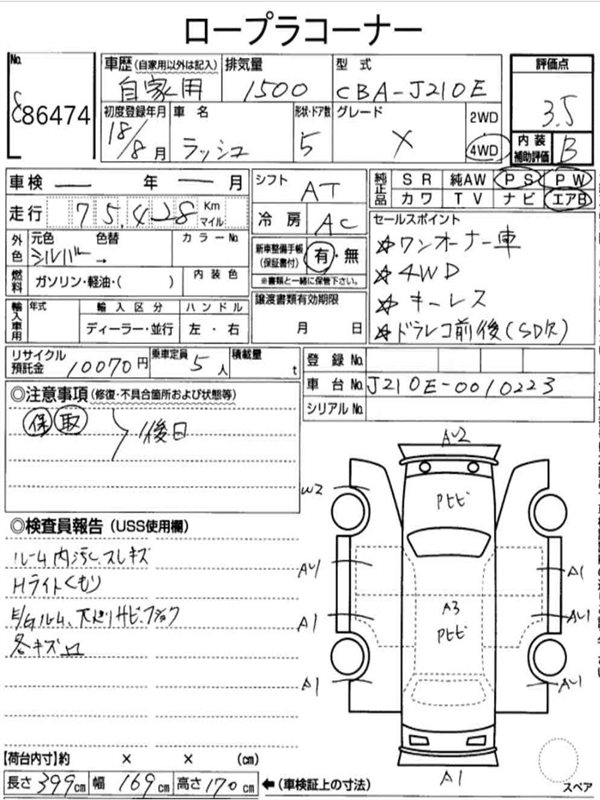 ロープラコーナー
No.
86474
車歴 (自家用以外は記入) 排気量 型式 評価点
自家用 1500 CBA-J210E 3.5
初度登録年月 車名 形状・ドア数 グレード 2WD
18/8月 ラッシュ 5 X 4WD
内装補助評価 B
車検 ― 年 ― 月 シフト AT
純正品 SR 純AW PS PW
カワ TV ナビ エアB
走行 75,428 Km マイル 冷房 AC
セールスポイント
☆ワンオーナー車
☆4WD
☆キーレス
☆ドラレコ前後(SD欠)
外色 元色 色替 カラーNo.
シルバー →
新車整備手帳(保証書付) 有・無
※書類と一緒に保管下さい。
燃料 ガソリン・軽油・( ) 内装色
譲渡書類有効期限
月 日
輸入車用 年式 輸入区分 ハンドル
ディーラー・並行 左・右
リサイクル預託金 10070円 乗車定員 5人 積載量 t
登録No.
車台No. J210E-0010223
シリアルNo.
◎注意事項 (修復・不具合箇所および状態等)
保 取 後日
◎検査員報告 (USS使用欄)
ルーム内汚レスレキズ
Hライトくもり
E/Gルーム、下廻りサビ
各キズ凹
A2
W2
Pヒビ
A1
A1
A3
Pヒビ
A1
A1
A1
【荷台内寸】約 × × (cm)
長さ 399cm 幅 169cm 高さ 170cm ←(車検証上の寸法)
スペア